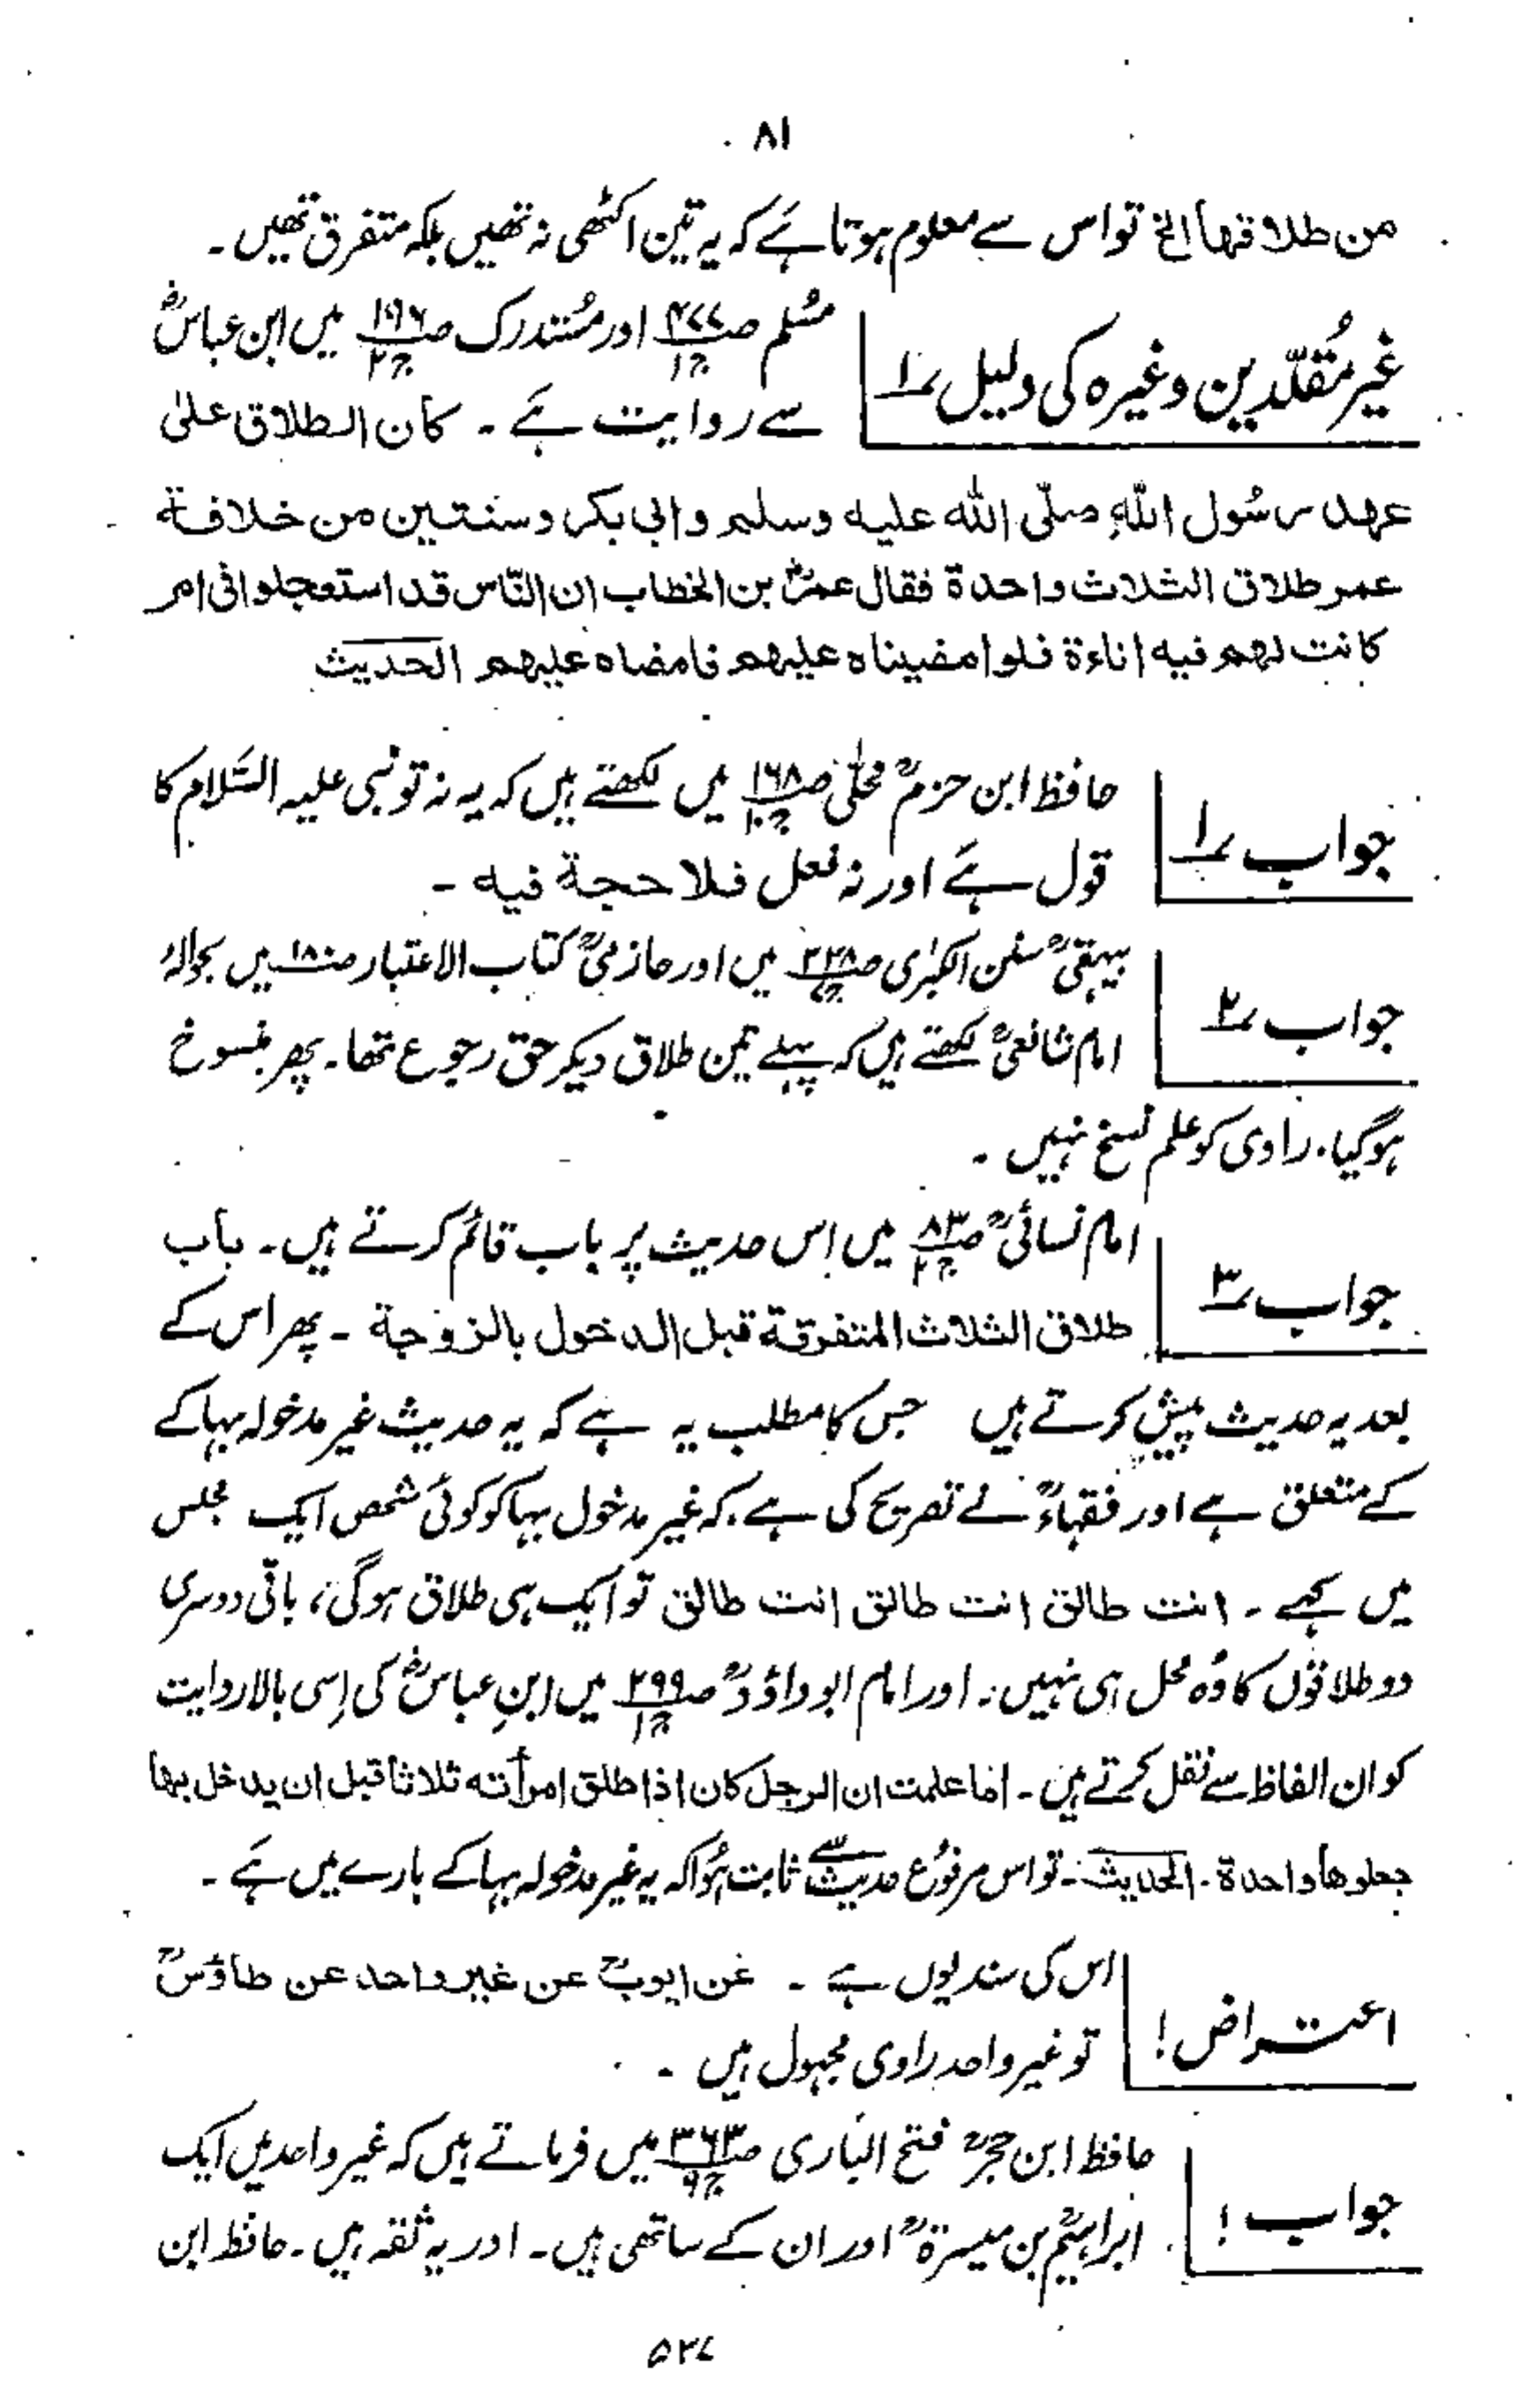 ۸۱
من طلاقها الخ تو اس سے معلوم ہوتا ہے کہ یہ تین اکٹھی نہ تھیں بلکہ متفرق تھیں۔
غیر مُقلّدین وغیرہ کی دلیل ۱؎
مُسلم صـ۴۷۷ ج۱ اور مُستدرک صـ۱۹۶ ج۲ میں ابن عباسؓ
سے روایت ہے۔ کان الطلاق علیٰ
عهد رسُول اللّٰہِ صلّی اللّٰہ علیہ وسلم وابی بکر وسنتین من خلافة
عمر طلاق الثلاث واحدة فقال عمرؓ بن الخطاب ان النّاس قد استعجلوا فی امر
کانت لهم فیه اناءة فلو امضیناہ علیهم فامضاہ علیهم الحدیث
جواب ۱؎
حافظ ابن حزمؒ محلّٰی صـ۱۶۸ ج۱۰ میں لکھتے ہیں کہ یہ نہ تو نبی علیہ السَّلام کا
قول ہے اور نہ فعل فلا حجة فیه ۔
جواب ۲؎
بیہقیؒ سنن الکبریٰ صـ۳۳۸ ج۷ میں اور حازمیؒ کتاب الاعتبار صـ۱۸۰ میں بحوالہٴ
امام شافعیؒ لکھتے ہیں کہ پہلے تین طلاق دیکر حق رجوع تھا۔ پھر منسوخ
ہوگیا۔ راوی کو علم نسخ نہیں ۔
جواب ۳؎
امام نسائیؒ صـ۸۳ ج۲ میں اِس حدیث پر باب قائم کرتے ہیں۔ باب
طلاق الثلاث المتفرقة قبل الدخول بالزوجة ۔ پھر اس کے
بعد یہ حدیث پیش کرتے ہیں جس کا مطلب یہ ہے کہ یہ حدیث غیر مدخولہ بہا کے
کے متعلق ہے اور فقہاءؒ نے تصریح کی ہے۔ کہ غیر مدخول بہا کو کوئی شخص ایک مجلس
میں کہے ۔ انت طالق انت طالق انت طالق تو ایک ہی طلاق ہوگی، باقی دوسری
دو طلاقوں کا وُہ محل ہی نہیں۔ اور امام ابو داؤدؒ صـ۲۹۹ ج۱ میں ابنِ عباسؓ کی اِسی بالا روایت
کو ان الفاظ سے نقل کرتے ہیں۔ اما علمت ان الرجل کان اذا طلق امرأته ثلاثا قبل ان یدخل بها
جعلوها واحدة۔ الحدیث۔ تو اس مرفُوع حدیث سے ثابت ہُوا کہ یہ غیر مدخولہ بہا کے بارے میں ہے ۔
اعتراض!
اس کی سند یوں ہے ۔ عن ایوبؒ عن غیر واحد عن طاؤسؒ
تو غیر واحد راوی مجہول ہیں ۔
جواب!
حافظ ابن حجرؒ فتح الباری صـ۳۶۳ ج۹ میں فرماتے ہیں کہ غیر واحد میں ایک
ابراہیمؒ بن میسرةؒ اور ان کے ساتھی ہیں۔ اور یہ ثقہ ہیں۔ حافظ ابن
۵۳۷